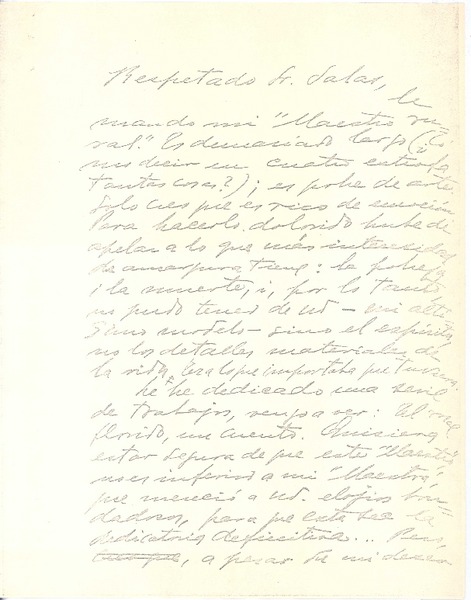 Respetado Sr. Salas,
le
mando mi "Maestro ru-
ral." Es demasiado largo (¿Có
mo decir en cuatro estrofas
tantas cosas?); es pobre de arte.
Solo creo que es rico de emoción.
Para hacerlo dolorido hube de
apelar a lo que más intensidad
de amargura tiene: la pobreza
i la muerte, i, por lo tanto
no pudo tener de Ud – mi altí
simo modelo – sino el espíritu,
no los detalles materiales de
la vida. Era lo que importaba que tuviera.
Le he dedicado una serie
de trabajos, vengo a ver: El
florido, un cuento. Quisiera
estar segura de que este "Maestro"
no es inferior a mi "Maestra",
que mereció a Ud. elojios bon-
dadosos, para que esta sea la
dedicatoria definitiva... Pero,
, a pesar de mi deseo